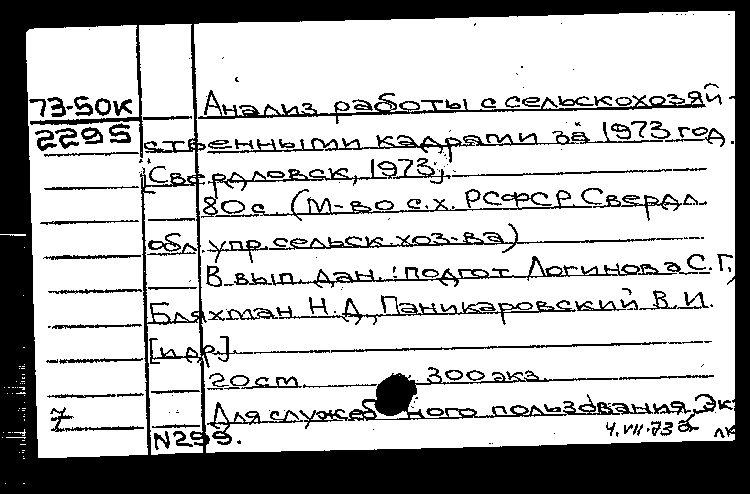 73-50К Анализ работы с сельскохозяй-
2295 ственными кадрами за 1973 год.
[Свердловск, 1973].
80 с. (М-во с.х. РСФСР. Свердл.
обл. упр. сельск. хоз-ва)
В вып. дан.: подгот. Логинова С.Г.,
Бляхман Н.Д., Паникаровский В.И.
[и др].
20 см. 300 экз.
7 Для служебного пользования. Эк
N299. 4.VII.73